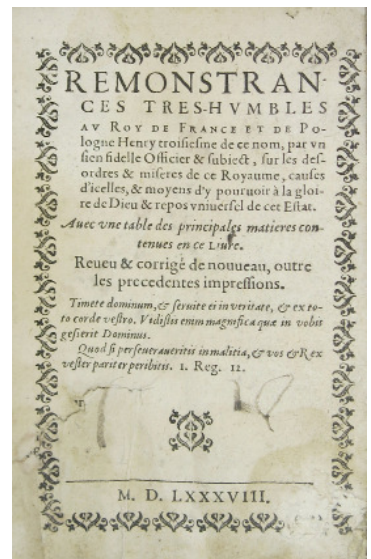 REMONSTRAN-
CES TRES-HVMBLES
AV ROY DE FRANCE ET DE PO-
logne Henry troisiesme de ce nom, par vn
sien fidelle Officier & subiect, sur les des-
ordres & miseres de ce Royaume, causes
d'icelles, & moyens d'y pouruoir à la gloi-
re de Dieu & repos vniuersel de cet Estat.
Auec vne table des principales matieres con-
tenues en ce Liure.
Reueu & corrigé de nouueau, outre
les precedentes impressions.
Timete dominum, & seruite ei in veritate, & ex to-
to corde vestro. Vidistis enim magnifica quæ in vobis
gesserit Dominus.
Quod si perseueraueritis in malitia, & vos & Rex
vester pariter peribitis. 1. Reg. 12.
M. D. LXXXVIII.